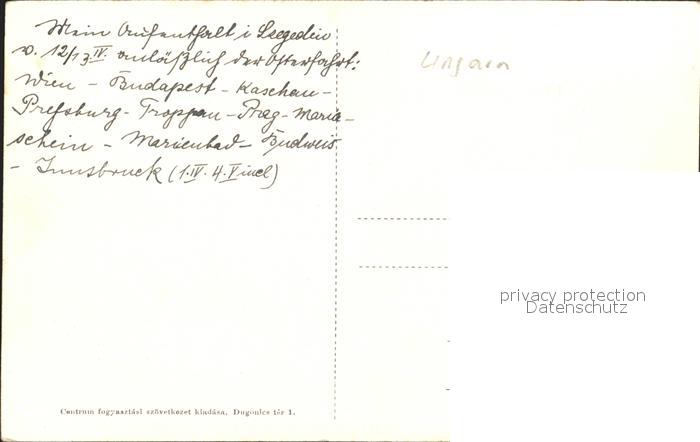 Mein Aufenthalt i Szegedin
v. 12/13.IV. anläßlich der Osterfahrt:
Wien - Budapest - Kaschau -
Preßburg - Troppau - Prag - Maria-
schein - Marienbad - Budweis
- Innsbruck (1.IV. 4.V incl)
Ungarn
privacy protection
Datenschutz
Centrum fogyasztási szövetkezet kiadása, Dugonics tér 1.